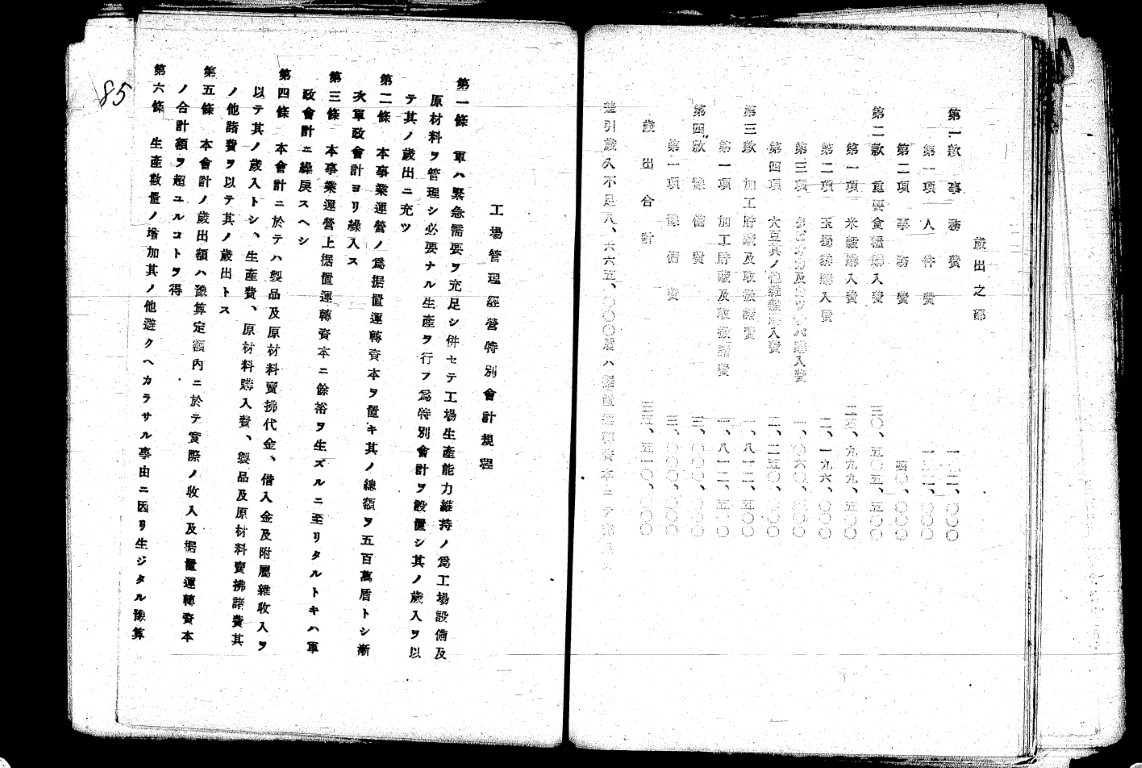 歳出之部
第一款 事務費 一六二、〇〇〇
第一項 人件費 一二二、〇〇〇
第二項 事務費 四〇、〇〇〇
第二款 重要食糧購入費 三〇、五〇五、五〇〇
第一項 米穀購入費
第二項 玉蜀黍購入費 二、一九九、〇〇〇
第三項 購入費 一、〇六〇、〇〇〇
第四項 大豆其ノ他雑穀購入費 二、二五〇、〇〇〇
第三款 加工貯蔵及取扱諸費 一、八一二、五〇〇
第一項 加工貯蔵及取扱諸費 一、八一二、五〇〇
第四款 豫備費 三、〇〇〇、〇〇〇
第一項 豫備費 三、〇〇〇、〇〇〇
歳出合計
差引歳入不足八、六六五、〇〇〇盾ハ据置運轉資本ニテ
工場管理経營特別會計規程
第一條 軍ハ緊急需要ヲ充足シ併セテ工場生産能力維持ノ爲工場設備及
原材料ヲ管理シ必要ナル生産ヲ行フ爲特別會計ヲ設置シ其ノ歳入ヲ以
テ其ノ歳出ニ充ツ
第二條 本事業運營ノ爲据置運轉資本ヲ置キ其ノ總額ヲ五百萬盾トシ漸
次軍政會計ヨリ繰入ス
第三條 本事業運營上据置運轉資本ニ餘裕ヲ生ズルニ至リタルトキハ軍
政會計ニ繰戻スヘシ
第四條 本會計ニ於テハ製品及原材料賣拂代金、借入金及附屬雜收入ヲ
以テ其ノ歳入トシ、生産費、原材料購入費、製品及原材料賣拂諸費其
ノ他諸費ヲ以テ其ノ歳出トス
第五條 本會計ノ歳出額ハ豫算定額内ニ於テ實際ノ收入及据置運轉資本
ノ合計額ヲ超ユルコトヲ得
第六條 生産數量ノ増加其ノ他避クヘカラサル事由ニ因リ生ジタル豫算
85